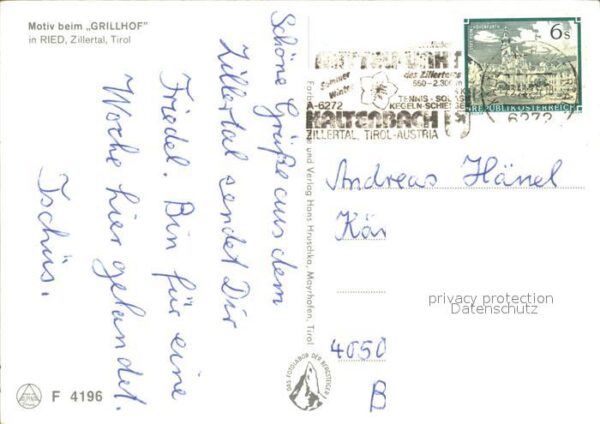 Motiv beim „GRILLHOF"
in RIED, Zillertal, Tirol
Schöne Grüße aus dem
Zillertal sendet Dir
Friedel. Bin für eine
Woche hier gelandet.
Tschüs.
F 4196
Verlag Hans Hruschka, Mayrhofen, Tirol
DAS FOTOLABOR DER BERGSTEIGER
Sommer
Winter
des Zillertals
TENNIS - 
KEGELN-SCHIE
A-6272
KALTENBACH
ZILLERTAL, TIROL-AUSTRIA
6 S
REPUBLIK ÖSTERREICH
6272
Andreas Hänel
Kär
4050
B
privacy protection
Datenschutz